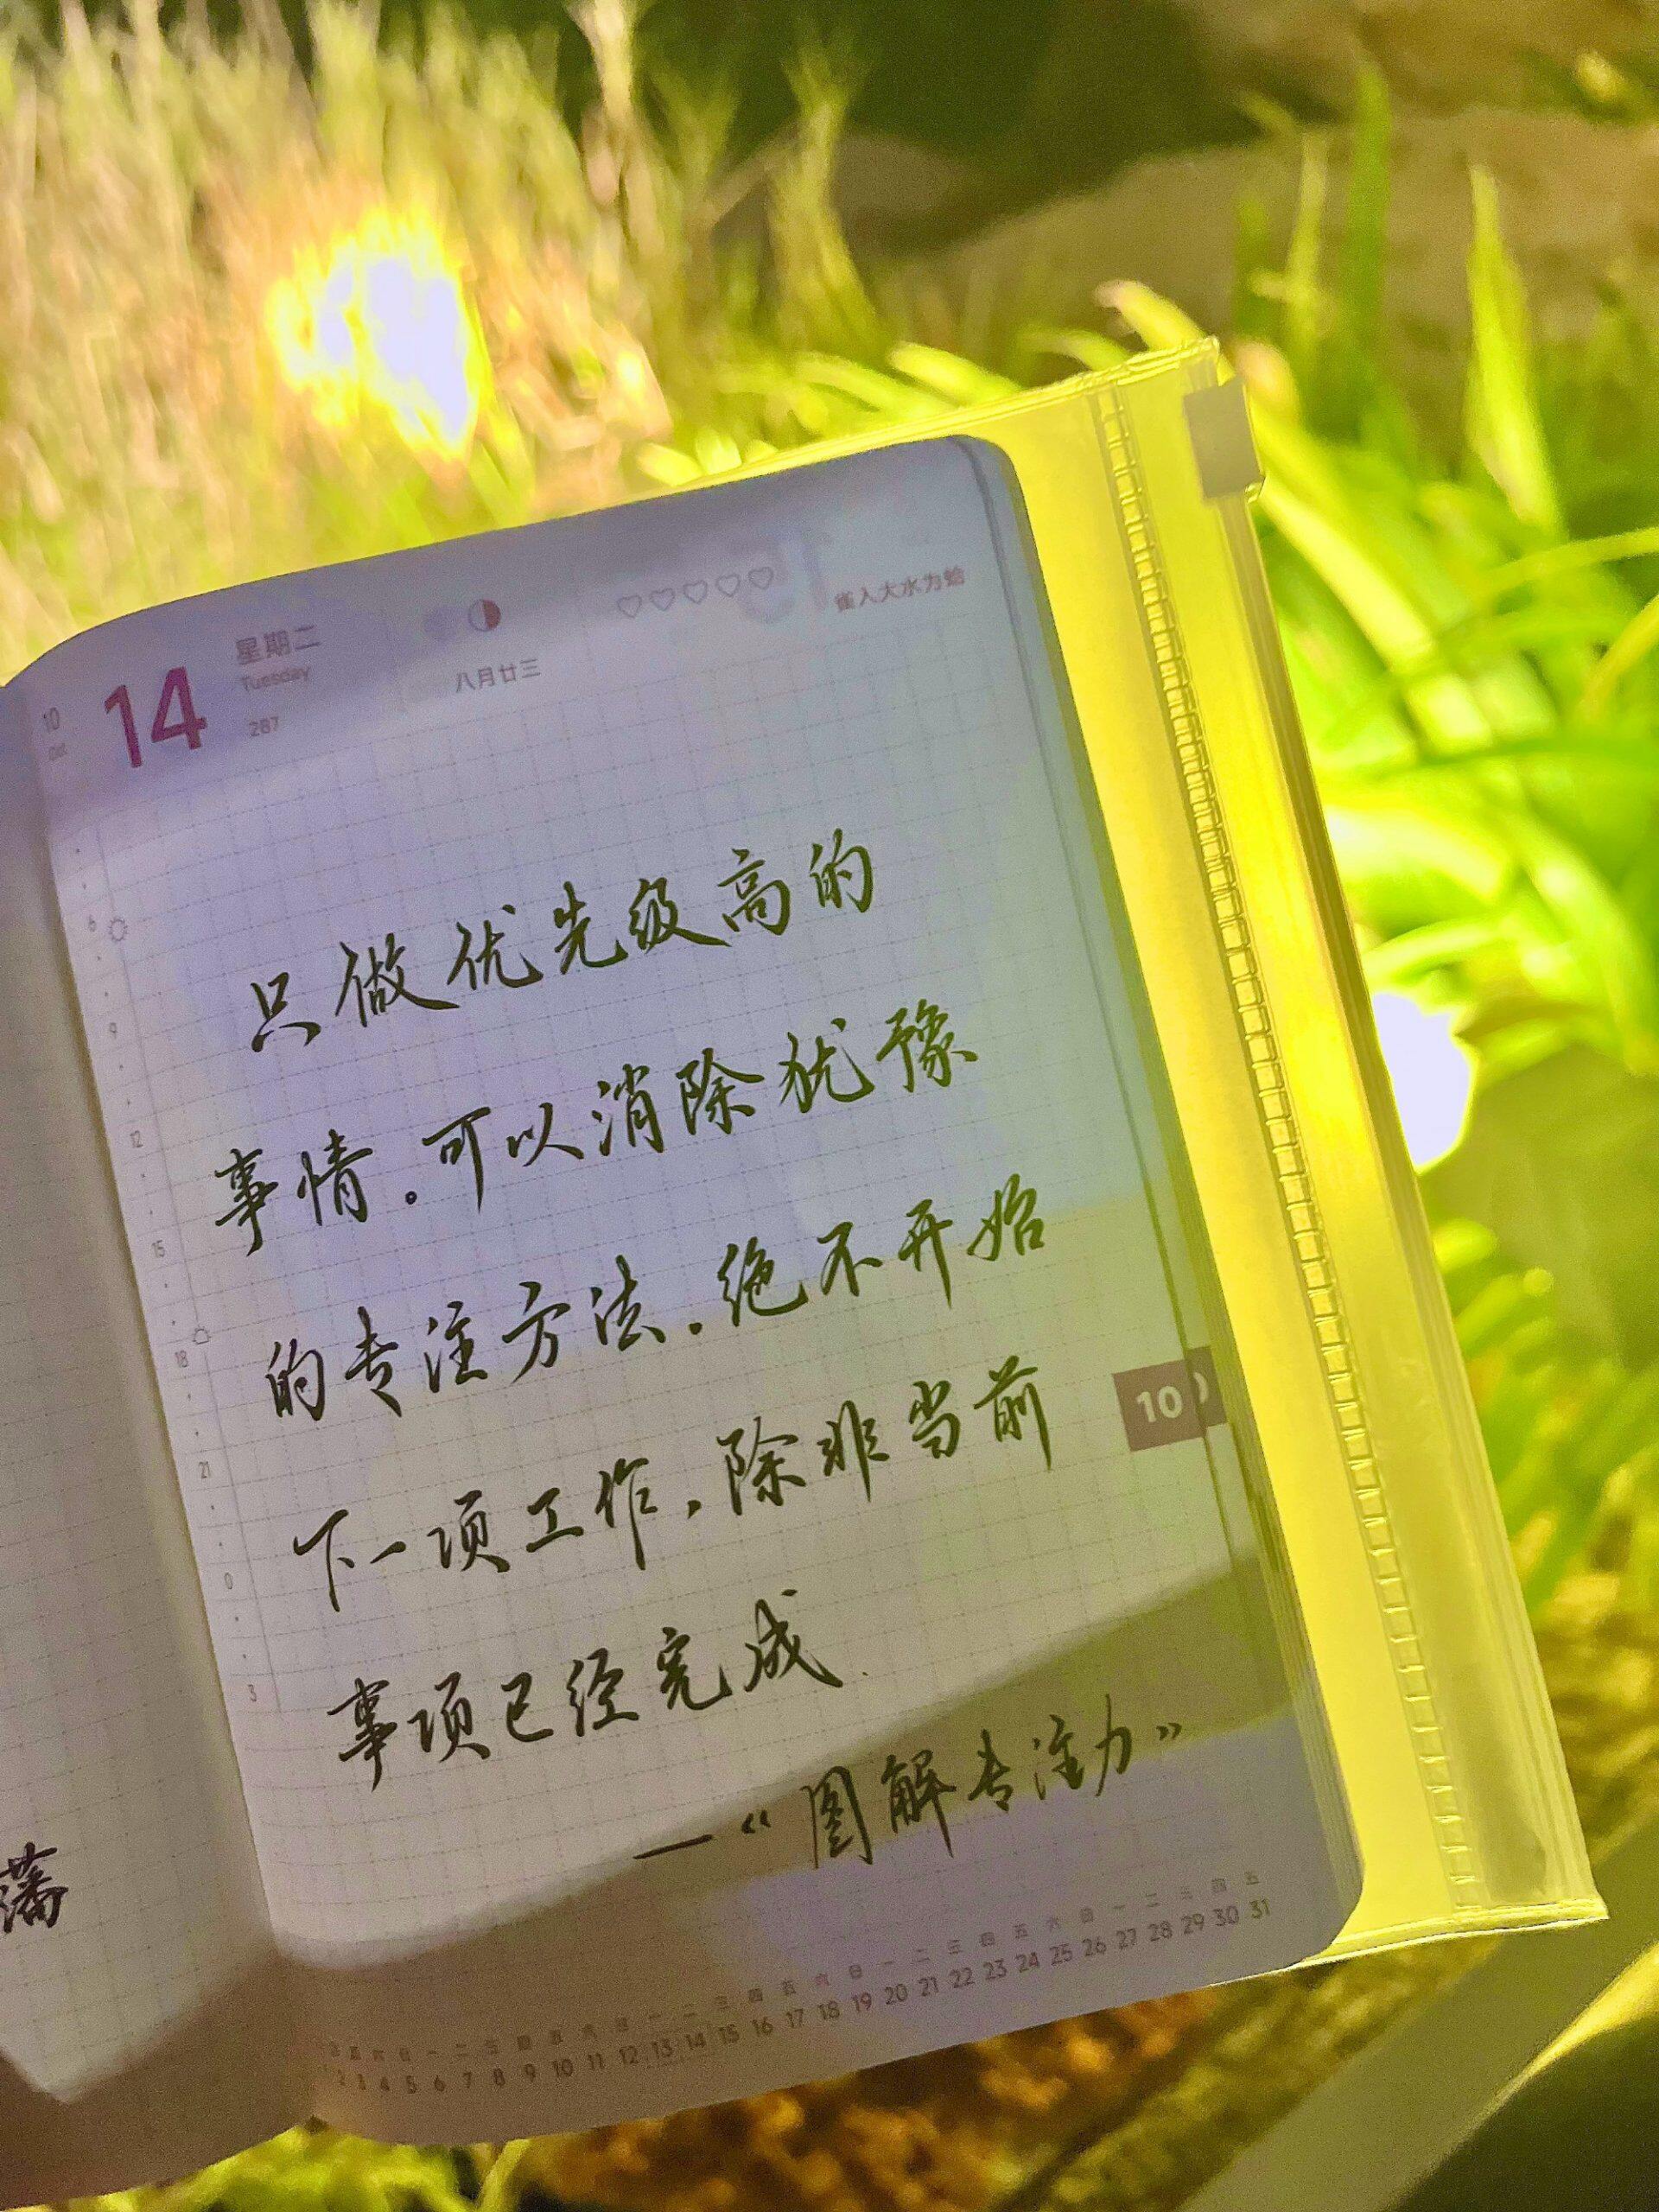 10
Oct
14
星期二
Tuesday
287
八月廿三
雀入大水为蛤
6
9
12
15
18
21
0
3
只做优先级高的
事情.可以消除犹豫
的专注方法.绝不开始
下一项工作,除非当前
事项已经完成
—《图解专注力》
10
藩
五 六 日 一 二 三 四 五 六 日 一 二 三 四 五 六 日 一 二 三 四 五 六 日 一 二 三 四 五
2 3 4 5 6 7 8 9 10 11 12 13 14 15 16 17 18 19 20 21 22 23 24 25 26 27 28 29 30 31